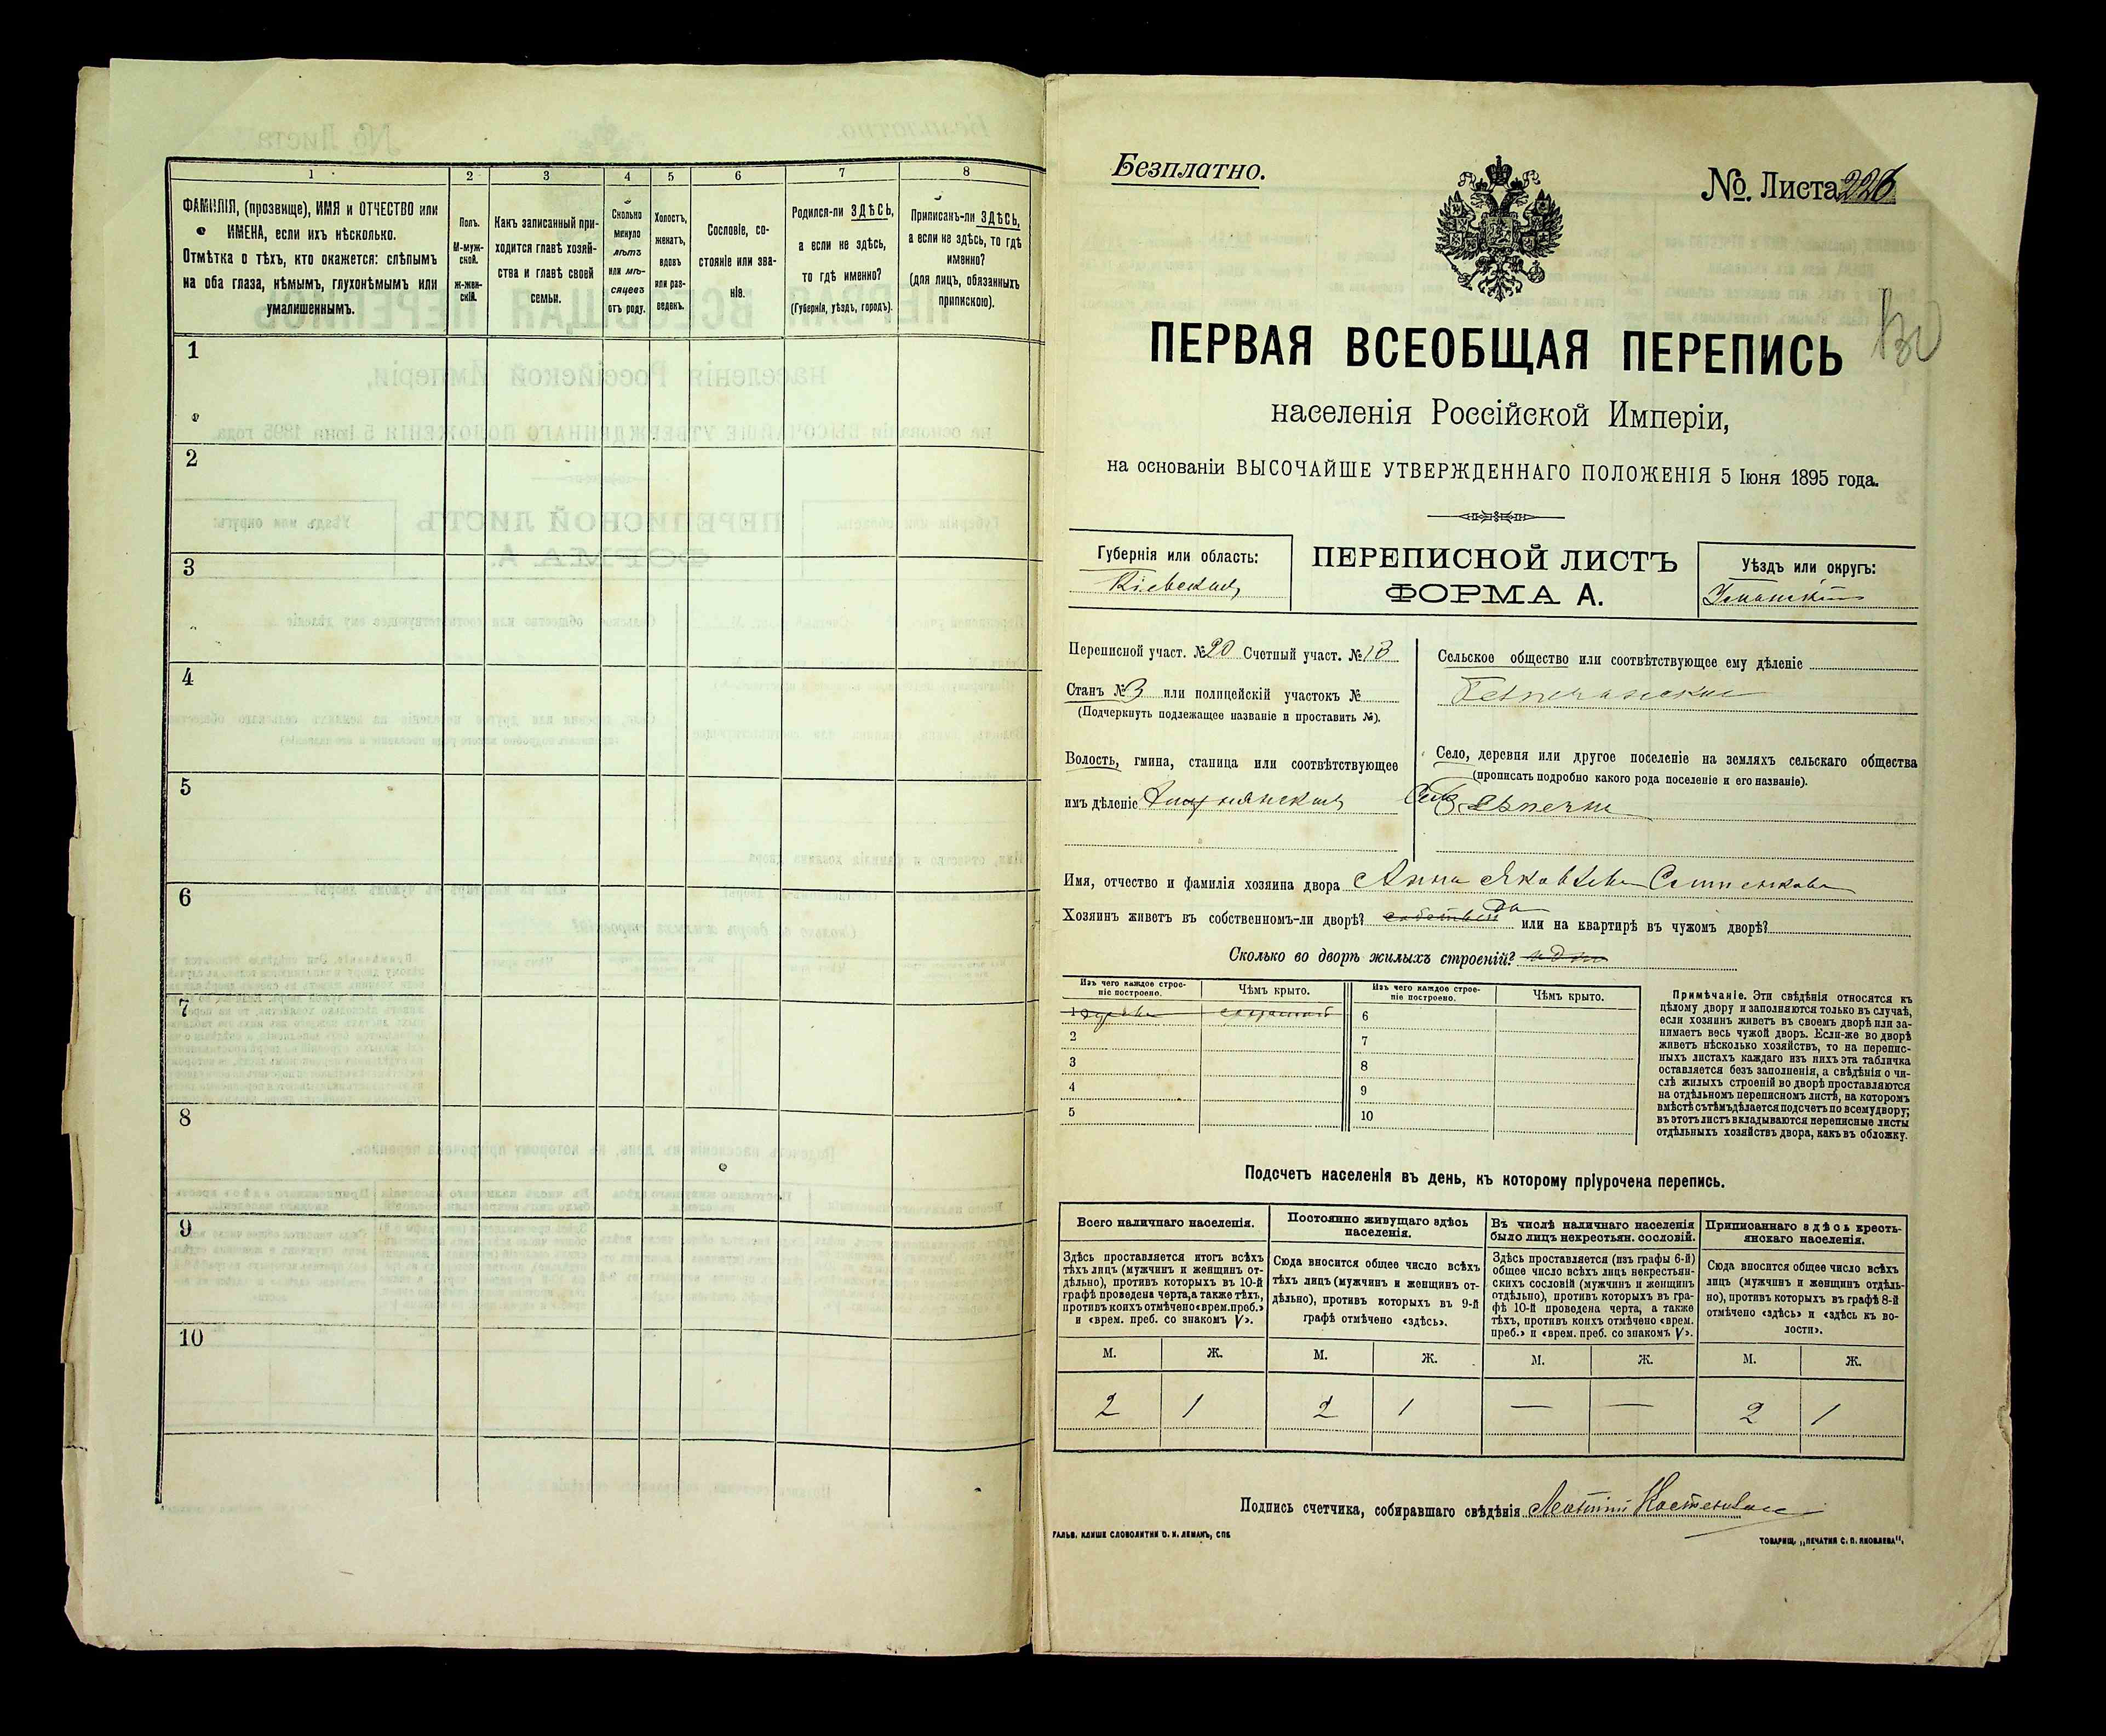 1 2 3 4 5 6 7 8
ФАМИЛІЯ, (прозвище), ИМЯ и ОТЧЕСТВО или
ИМЕНА, если ихъ нѣсколько.
Отмѣтка о тѣхъ, кто окажется: слѣпымъ
на оба глаза, нѣмымъ, глухонѣмымъ или
умалишеннымъ.
Полъ.
М-муж-
ской.
ж-жен-
скій.
Какъ записанный при-
ходится главѣ хозяй-
ства и главѣ своей
семьи.
Сколько
минуло
лѣтъ
или мѣ-
сяцевъ
отъ роду.
Холостъ,
женатъ,
вдовъ
или раз-
веденъ.
Сословіе, со-
стояніе или зва-
ніе.
Родился-ли ЗДѢСЬ,
а если не здѣсь,
то гдѣ именно?
(Губернія, уѣздъ, городъ).
Приписанъ-ли ЗДѢСЬ,
а если не здѣсь, то гдѣ
именно?
(для лицъ, обязанныхъ
припискою).
1
2
3
4
5
6
7
8
9
10
Безплатно.
№. Листа 226
130
ПЕРВАЯ ВСЕОБЩАЯ ПЕРЕПИСЬ
населенія Россійской Имперіи,
на основаніи ВЫСОЧАЙШЕ УТВЕРЖДЕННАГО ПОЛОЖЕНІЯ 5 Іюня 1895 года.
Губернія или область:
Кіевская
ПЕРЕПИСНОЙ ЛИСТЪ
ФОРМА А.
Уѣздъ или округъ:
Уманскій
Переписной участ. № 20 Счетный участ. № 13
Станъ № 3 или полицейскій участокъ №
(Подчеркнуть подлежащее названіе и проставить №).
Волость, гмина, станица или соотвѣтствующее
имъ дѣленіе
Сельское общество или соотвѣтствующее ему дѣленіе
Село, деревня или другое поселеніе на земляхъ сельскаго общества
(прописать подробно какого рода поселеніе и его названіе).
Имя, отчество и фамилія хозяина двора Анна Яковлева
Хозяинъ живетъ въ собственномъ-ли дворѣ? да или на квартирѣ въ чужомъ дворѣ?
Сколько во дворѣ жилыхъ строеній?
Изъ чего каждое строе-
ніе построено.
Чѣмъ крыто.
Изъ чего каждое строе-
ніе построено.
Чѣмъ крыто.
1
2
3
4
5
6
7
8
9
10
Примѣчаніе. Эти свѣдѣнія относятся къ
цѣлому двору и заполняются только въ случаѣ,
если хозяинъ живетъ въ своемъ дворѣ или за-
нимаетъ весь чужой дворъ. Если-же во дворѣ
живетъ нѣсколько хозяйствъ, то на перепис-
ныхъ листахъ каждаго изъ нихъ эта табличка
оставляется безъ заполненія, а свѣдѣнія о чи-
слѣ жилыхъ строеній во дворѣ проставляются
на отдѣльномъ переписномъ листѣ, на которомъ
вмѣстѣ съ тѣмъ дѣлается подсчетъ по всему двору;
въ этотъ листъ вкладываются переписные листы
отдѣльныхъ хозяйствъ двора, какъ въ обложку.
Подсчетъ населенія въ день, къ которому пріурочена перепись.
Всего наличнаго населенія.
Здѣсь проставляется итогъ всѣхъ
тѣхъ лицъ (мужчинъ и женщинъ от-
дѣльно), противъ которыхъ въ 10-й
графѣ проведена черта, а также тѣхъ,
противъ коихъ отмѣчено «врем. преб.»
и «врем. преб. со знакомъ V».
Постоянно живущаго здѣсь
населенія.
Сюда вносится общее число всѣхъ
тѣхъ лицъ (мужчинъ и женщинъ от-
дѣльно), противъ которыхъ въ 9-й
графѣ отмѣчено «здѣсь».
Въ числѣ наличнаго населенія
было лицъ некрестьян. сословій.
Здѣсь проставляется (изъ графы 6-й)
общее число всѣхъ лицъ некрестьян-
скихъ сословій (мужчинъ и женщинъ
отдѣльно), противъ которыхъ въ гра-
фѣ 10-й проведена черта, а также
тѣхъ, противъ коихъ отмѣчено «врем.
преб.» и «врем. преб. со знакомъ V».
Приписаннаго здѣсь кресть-
янскаго населенія.
Сюда вносится общее число всѣхъ
лицъ (мужчинъ и женщинъ отдѣль-
но), противъ которыхъ въ графѣ 8-й
отмѣчено «здѣсь» и «здѣсь къ во-
лости».
М. Ж. М. Ж. М. Ж. М. Ж.
2 1 2 1 — — 2 1
Подпись счетчика, собиравшаго свѣдѣнія
ГАЛЬВ. КЛИШЕ СЛОВОЛИТНИ О. И. ЛЕМАНЪ, СПБ
ТОВАРИЩ. „ПЕЧАТНЯ С. П. ЯКОВЛЕВА".